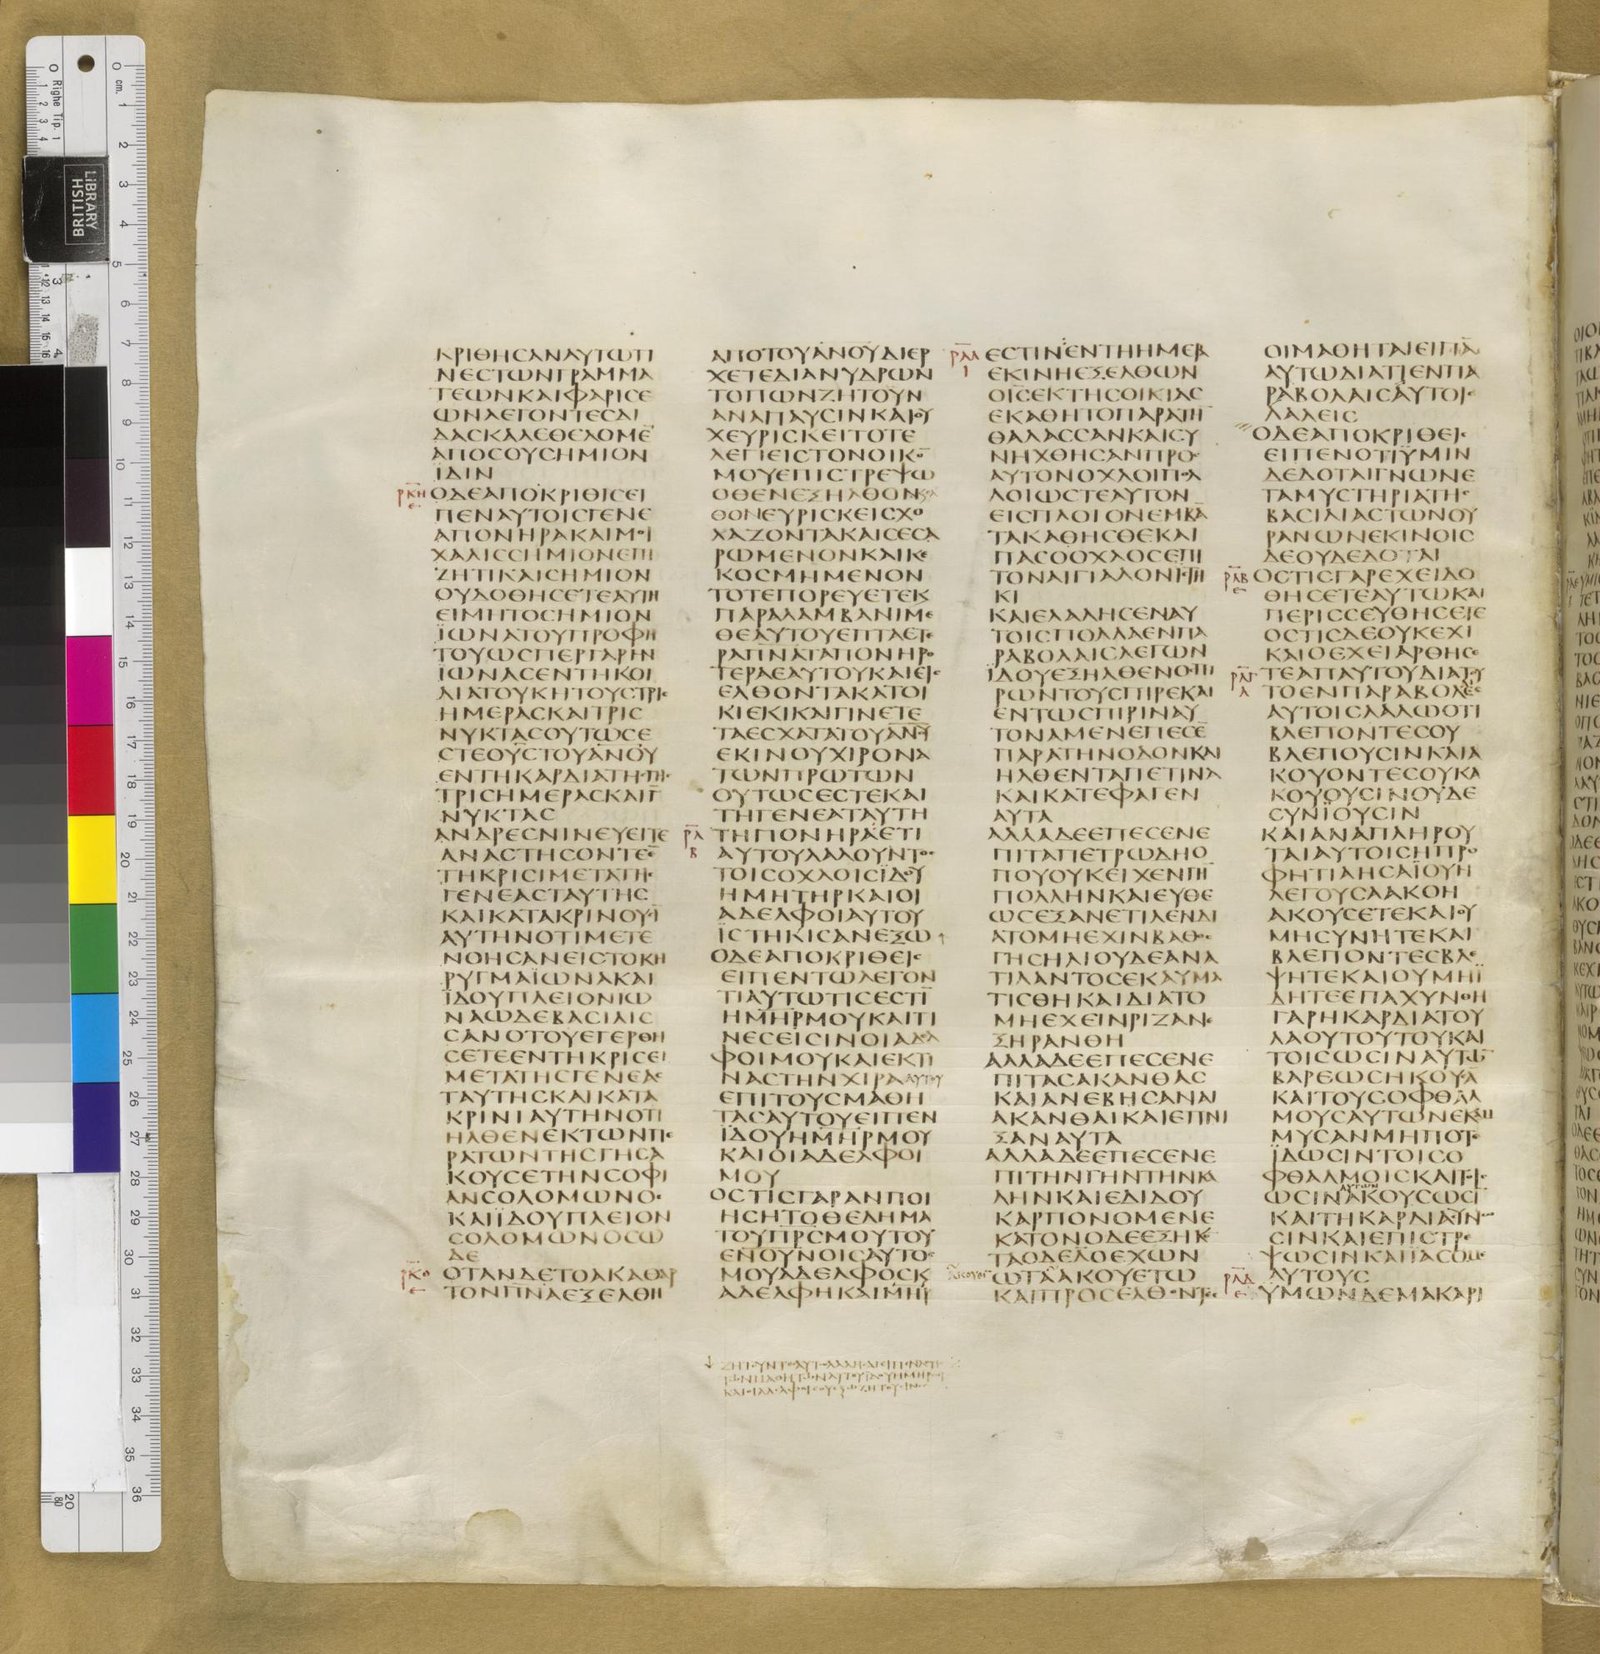 ΚΡΙΘΗϹΑΝΑΥΤΩΤΙ
ΝΕϹΤΩΝΓΡΑΜΜΑ
ΤΕΩΝΚΑΙΦΑΡΙϹΕ
ΩΝΛΕΓΟΝΤΕϹΔΙ
ΔΑϹΚΑΛΕΘΕΛΟΜΕ̅
ΑΠΟϹΟΥϹΗΜΙΟΝ
ΪΔΙΝ
ΡΚΗ
Ε
ΟΔΕΑΠΟΚΡΙΘΙϹΕΙ
ΠΕΝΑΥΤΟΙϹΓΕΝΕ
ΑΠΟΝΗΡΑΚΑΙΜΟΙ
ΧΑΛΙϹϹΗΜΙΟΝΕΠΙ
ΖΗΤΙΚΑΙϹΗΜΙΟΝ
ΟΥΔΟΘΗϹΕΤΕΑΥΤΗ
ΕΙΜΗΤΟϹΗΜΙΟΝ
ΪΩΝΑΤΟΥΠΡΟΦΗ
ΤΟΥΩϹΠΕΡΓΑΡΗΝ
ΙΩΝΑϹΕΝΤΗΚΟΙ
ΛΙΑΤΟΥΚΗΤΟΥϹΤΡΙϹ
ΗΜΕΡΑϹΚΑΙΤΡΙϹ
ΝΥΚΤΑϹΟΥΤΩϹΕ
ϹΤΕΟΥ̅Ϲ̅ΤΟΥΑ̅Ν̅Ο̅Υ̅
ΕΝΤΗΚΑΡΔΙΑΤΗϹΓΗϹ
ΤΡΙϹΗΜΕΡΑϹΚΑΙΓ̅
ΝΥΚΤΑϹ
ΑΝΔΡΕϹΝΙΝΕΥΕΙΤΕ
ΑΝΑϹΤΗϹΟΝΤΕ̅
ΤΗΚΡΙϹΙΜΕΤΑΤΗϹ
ΓΕΝΕΑϹΤΑΥΤΗϹ
ΚΑΙΚΑΤΑΚΡΙΝΟΥϹΙ̅
ΑΥΤΗΝΟΤΙΜΕΤΕ
ΝΟΗϹΑΝΕΙϹΤΟΚΗ
ΡΥΓΜΑΪΩΝΑΚΑΙ
ΪΔΟΥΠΛΕΙΟΝΙΩ
ΝΑΩΔΕΒΑϹΙΛΙϹ
ϹΑΝΟΤΟΥΕΓΕΡΘΗ
ϹΕΤΕΕΝΤΗΚΡΙϹΕΙ
ΜΕΤΑΤΗϹΓΕΝΕΑϹ
ΤΑΥΤΗϹΚΑΙΚΑΤΑ
ΚΡΙΝΙΑΥΤΗΝΟΤΙ
ΗΛΘΕΝΕΚΤΩΝΠΕ
ΡΑΤΩΝΤΗϹΓΗϹΑ
ΚΟΥϹΕΤΗΝϹΟΦΙ
ΑΝϹΟΛΟΜΩΝΟϹ
ΚΑΙΪΔΟΥΠΛΕΙΟΝ
ϹΟΛΟΜΩΝΟϹΩ
ΔΕ
ΡΚΘ
Ε
ΟΤΑΝΔΕΤΟΑΚΑΘΑΡ
ΤΟΝΠ̅Ν̅Α̅ΕΞΕΛΘΗ
ΑΠΟΤΟΥΑ̅Ν̅Ο̅Υ̅ΔΙΕΡ
ΧΕΤΕΔΙΑΝΥΔΡΩΝ
ΤΟΠΩΝΖΗΤΟΥΝ
ΑΝΑΠΑΥϹΙΝΚΑΙΟΥ
ΧΕΥΡΙϹΚΕΙΤΟΤΕ
ΛΕΓΙΕΙϹΤΟΝΟΙΚΟ̅
ΜΟΥΕΠΙϹΤΡΕΨΩ
ΟΘΕΝΕΞΗΛΘΟΝΚΑΙ
ΘΟΝΕΥΡΙϹΚΕΙϹΧΟ
ΛΑΖΟΝΤΑΚΑΙϹΕϹΑ
ΡΩΜΕΝΟΝΚΑΙΚΕ
ΚΟϹΜΗΜΕΝΟΝ
ΤΟΤΕΠΟΡΕΥΕΤΕΚ
ΠΑΡΑΛΑΜΒΑΝΙΜΕ
ΘΕΑΥΤΟΥΕΠΤΑΕΤΕ
ΡΑΠ̅Ν̅Α̅ΤΑΠΟΝΗΡΟ
ΤΕΡΑΕΑΥΤΟΥΚΑΙΕΙϹ
ΕΛΘΟΝΤΑΚΑΤΟΙ
ΚΙΕΚΙΚΑΙΓΙΝΕΤΕ
ΤΑΕϹΧΑΤΑΤΟΥΑ̅Ν̅Ο̅Υ̅
ΕΚΙΝΟΥΧΙΡΟΝΑ
ΤΩΝΠΡΩΤΩΝ
ΟΥΤΩϹΕϹΤΕΚΑΙ
ΤΗΓΕΝΕΑΤΑΥΤΗ
ΡΛ
Β
ΤΗΠΟΝΗΡΑΕΤΙ
ΑΥΤΟΥΛΑΛΟΥΝΤΟϹ
ΤΟΙϹΟΧΛΟΙϹΪΔΟΥ
ΗΜΗΤΗΡΚΑΙΟΙ
ΑΔΕΛΦΟΙΑΥΤΟΥ
ΪϹΤΗΚΙϹΑΝΕΞΩ↑
ΟΔΕΑΠΟΚΡΙΘΕΙϹ
ΕΙΠΕΝΤΩΛΕΓΟΝ
ΤΙΑΥΤΩΤΙϹΕϹΤΙ̅
ΗΜ̅Η̅Ρ̅ΜΟΥΚΑΙΤΙ
ΝΕϹΕΙϹΙΝΟΙΑΔΕΛ
ΦΟΙΜΟΥΚΑΙΕΚΤΙ
ΝΑϹΤΗΝΧΙΡΑΑΥΤΟΥ
ΕΠΙΤΟΥϹΜΑΘΗ
ΤΑϹΑΥΤΟΥΕΙΠΕΝ
ΪΔΟΥΗΜ̅Η̅Ρ̅ΜΟΥ
ΚΑΙΟΙΑΔΕΛΦΟΙ
ΜΟΥ
ΟϹΤΙϹΓΑΡΑΝΠΟΙ
ΗϹΗΤΟΘΕΛΗΜΑ
ΤΟΥΠ̅Ρ̅Ϲ̅ΜΟΥΤΟΥ
ΕΝΟΥΝΟΙϹΑΥΤΟϹ
ΜΟΥΑΔΕΛΦΟϹΚ
ΑΔΕΛΦΗΚΑΙΜ̅Η̅Ρ̅
ΡΛΑ
Ι
ΕϹΤΙΝΕΝΤΗΗΜΕΡΑ
ΕΚΙΝΗΕΞΕΛΘΩΝ
ΟΙ̅Ϲ̅ΕΚΤΗϹΟΙΚΙΑϹ
ΕΚΑΘΗΤΟΠΑΡΑΤΗ̅
ΘΑΛΑϹϹΑΝΚΑΙϹΥ
ΝΗΧΘΗϹΑΝΠΡΟϹ
ΑΥΤΟΝΟΧΛΟΙΠΟΛ
ΛΟΙΩϹΤΕΑΥΤΟΝ
ΕΙϹΠΛΟΙΟΝΕΜΒΑ̅
ΤΑΚΑΘΗϹΘΕΚΑΙ
ΠΑϹΟΟΧΛΟϹΕΠΙ
ΤΟΝΑΙΓΙΑΛΟΝΙϹΤΗ
ΚΙ
ΚΑΙΕΛΑΛΗϹΕΝΑΥ
ΤΟΙϹΠΟΛΛΑΕΝΠΑ
ΡΑΒΟΛΑΙϹΛΕΓΩΝ
ΪΔΟΥΕΞΗΛΘΕΝΟϹΠΙ
ΡΩΝΤΟΥϹΠΙΡΕΚΑΙ
ΕΝΤΩϹΠΙΡΙΝΑΥ
ΤΟΝΑΜΕΝΕΠΕϹΕ̅
ΠΑΡΑΤΗΝΟΔΟΝΚΑΙ
ΗΛΘΕΝΤΑΠΕΤΙΝΑ
ΚΑΙΚΑΤΕΦΑΓΕΝ
ΑΥΤΑ
ΑΛΛΑΔΕΕΠΕϹΕΝΕ
ΠΙΤΑΠΕΤΡΩΔΗΟ
ΠΟΥΟΥΚΕΙΧΕΝΓΗ̅
ΠΟΛΛΗΝΚΑΙΕΥΘΕ
ΩϹΕΞΑΝΕΤΙΛΕΝΔΙ
ΑΤΟΜΗΕΧΙΝΒΑΘΟϹ
ΓΗϹΗΛΙΟΥΔΕΑΝΑ
ΤΙΛΑΝΤΟϹΕΚΑΥΜΑ
ΤΙϹΘΗΚΑΙΔΙΑΤΟ
ΜΗΕΧΕΙΝΡΙΖΑΝΕ
ΞΗΡΑΝΘΗ
ΑΛΛΑΔΕΕΠΕϹΕΝΕ
ΠΙΤΑϹΑΚΑΝΘΑϹ
ΚΑΙΑΝΕΒΗϹΑΝΑΙ
ΑΚΑΝΘΑΙΚΑΙΕΠΝΙ
ΞΑΝΑΥΤΑ
ΑΛΛΑΔΕΕΠΕϹΕΝΕ
ΠΙΤΗΝΓΗΝΤΗΝΚΑ
ΛΗΝΚΑΙΕΔΙΔΟΥ
ΚΑΡΠΟΝΟΜΕΝΕ
ΚΑΤΟΝΟΔΕΕΞΗΚΕ̅
ΤΑΟΔΕΛ̅ΟΕΧΩΝ
ΑΚΟΥΕΙ̅
ΩΤΑΑΚΟΥΕΤΩ
ΚΑΙΠΡΟϹΕΛΘΟΝΤΕϹ
ΟΙΜΑΘΗΤΑΙΕΙΠΑ̅
ΑΥΤΩΔΙΑΤΙΕΝΠΑ
ΡΑΒΟΛΑΙϹΑΥΤΟΙϹ
ΛΑΛΕΙϹ
ΟΔΕΑΠΟΚΡΙΘΕΙϹ
ΕΙΠΕΝΟΤΙΫΜΙΝ
ΔΕΔΟΤΑΙΓΝΩΝΕ
ΤΑΜΥϹΤΗΡΙΑΤΗϹ
ΒΑϹΙΛΙΑϹΤΩΝΟΥ
ΡΑΝΩΝΕΚΙΝΟΙϹ
ΔΕΟΥΔΕΔΟΤΑΙ
ΡΛΒ
Ε
ΟϹΤΙϹΓΑΡΕΧΕΙΔΟ
ΘΗϹΕΤΕΑΥΤΩΚΑΙ
ΠΕΡΙϹϹΕΥΘΗϹΕΤΕ
ΟϹΤΙϹΔΕΟΥΚΕΧΙ
ΚΑΙΟΕΧΕΙΑΡΘΗϹΕ
ΡΛΓ
Α
ΤΕΑΠΑΥΤΟΥΔΙΑΤΟΥ
ΤΟΕΝΠΑΡΑΒΟΛΕϹ
ΑΥΤΟΙϹΛΑΛΩΟΤΙ
ΒΛΕΠΟΝΤΕϹΟΥ
ΒΛΕΠΟΥϹΙΝΚΑΙΑ
ΚΟΥΟΝΤΕϹΟΥΚΑ
ΚΟΥΟΥϹΙΝΟΥΔΕ
ϹΥΝΙΟΥϹΙΝ
ΚΑΙΑΝΑΠΛΗΡΟΥ
ΤΑΙΑΥΤΟΙϹΗΠΡΟ
ΦΗΤΙΑΗϹΑΪΟΥΗ
ΛΕΓΟΥϹΑΑΚΟΗ
ΑΚΟΥϹΕΤΕΚΑΙΟΥ
ΜΗϹΥΝΗΤΕΚΑΙ
ΒΛΕΠΟΝΤΕϹΒΛΕ
ΨΗΤΕΚΑΙΟΥΜΗΪ
ΔΗΤΕΕΠΑΧΥΝΘΗ
ΓΑΡΗΚΑΡΔΙΑΤΟΥ
ΛΑΟΥΤΟΥΤΟΥΚΑΙ
ΤΟΙϹΩϹΙΝΑΥΤΩ̅
ΒΑΡΕΩϹΗΚΟΥϹΑ̅
ΚΑΙΤΟΥϹΟΦΘΑΛ
ΜΟΥϹΑΥΤΩΝΕΚΑΜ
ΜΥϹΑΝΜΗΠΟΤΕ
ΪΔΩϹΙΝΤΟΙϹΟ
ΦΘΑΛΜΟΙϹΚΑΙΤΟΙϹ
ΑΥΤΩΝ
ΩϹΙΝΑΚΟΥϹΩϹΙ̅
ΚΑΙΤΗΚΑΡΔΙΑϹΥΝ
ϹΙΝΚΑΙΕΠΙϹΤΡΕ
ΨΩϹΙΝΚΑΙΪΑϹΟΜΕ
ΑΥΤΟΥϹ
ΡΛΔ
Ε
ΫΜΩΝΔΕΜΑΚΑΡΙ
BRITISH
LIBRARY
cm.
Righe Tip. 1